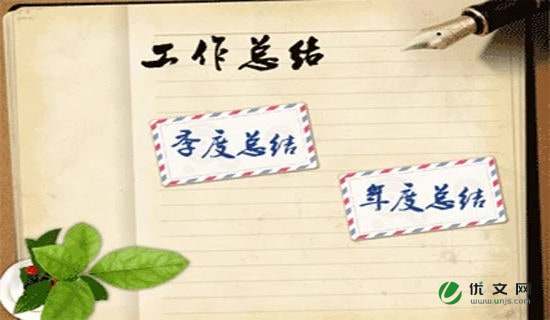 工作总结
季度总结
年度总结
优文网
www.unjs.com